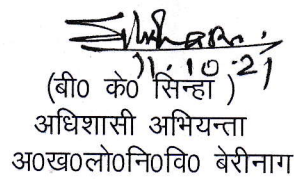 11.10.21
(बी0 के0 सिन्हा )
अधिशासी अभियन्ता
अ0ख0लो0नि0वि0 बेरीनाग